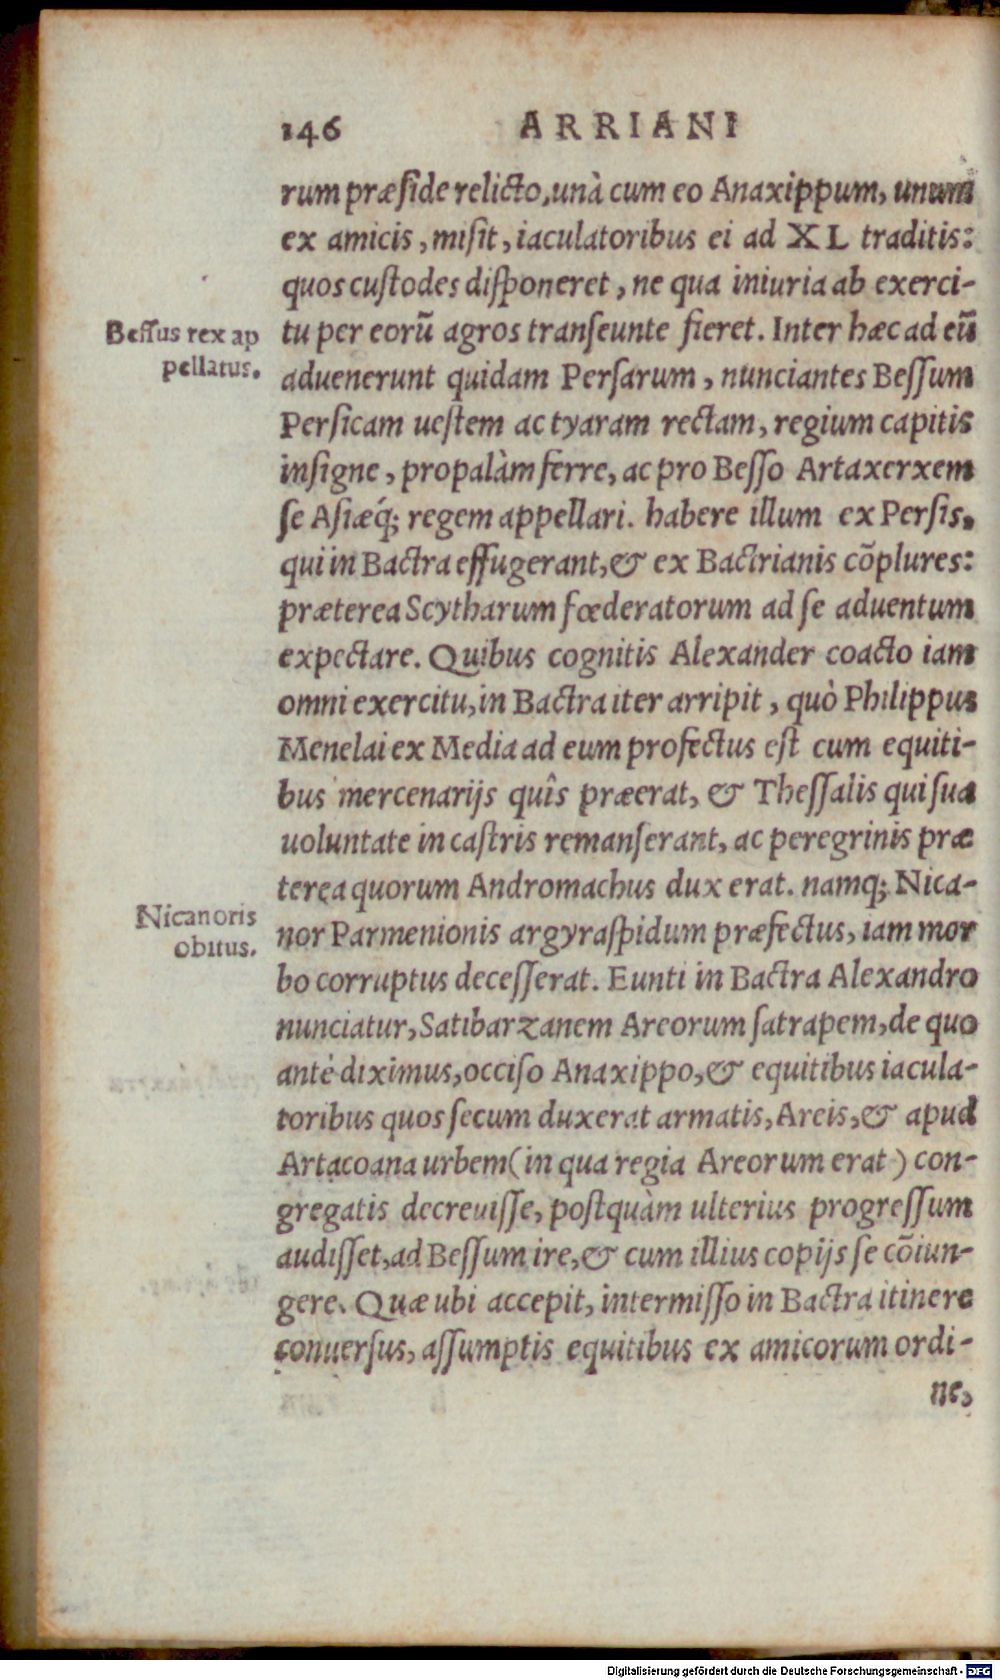 146 ARRIANI
rum præside relicto, unà cum eo Anaxippum, unum
ex amicis, misit, iaculatoribus ei ad XL traditis:
quos custodes disponeret, ne qua iniuria ab exerci-
tu per eorū agros transeunte fieret. Inter hæc ad eū
Bessus rex ap
pellatus.
aduenerunt quidam Persarum, nunciantes Bessum
Persicam uestem ac tyaram rectam, regium capitis
insigne, propalàm ferre, ac pro Besso Artaxerxem
se Asiæq́; regem appellari. habere illum ex Persis,
qui in Bactra effugerant, & ex Bactrianis cōplures:
præterea Scytharum fœderatorum ad se aduentum
expectare. Quibus cognitis Alexander coacto iam
omni exercitu, in Bactra iter arripit, quò Philippus
Menelai ex Media ad eum profectus est cum equiti-
bus mercenarijs quîs præerat, & Thessalis qui sua
uoluntate in castris remanserant, ac peregrinis præ
terea quorum Andromachus dux erat. namq; Nica-
Nicanoris
obitus.
nor Parmenionis argyraspidum præfectus, iam mor
bo corruptus decesserat. Eunti in Bactra Alexandro
nunciatur, Satibarzanem Areorum satrapem, de quo
antè diximus, occiso Anaxippo, & equitibus iacula-
toribus quos secum duxerat armatis, Areis, & apud
Artacoana urbem (in qua regia Areorum erat) con-
gregatis decreuisse, postquàm ulterius progressum
audisset, ad Bessum ire, & cum illius copijs se cōiun-
gere. Quæ ubi accepit, intermisso in Bactra itinere
conuersus, assumptis equitibus ex amicorum ordi-
ne,
Digitalisierung gefördert durch die Deutsche Forschungsgemeinschaft - DFG